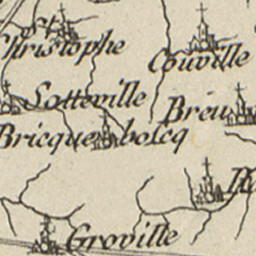 St
Christophe
Couville
Sotteville
Breu
Bricquebolcq
Groville